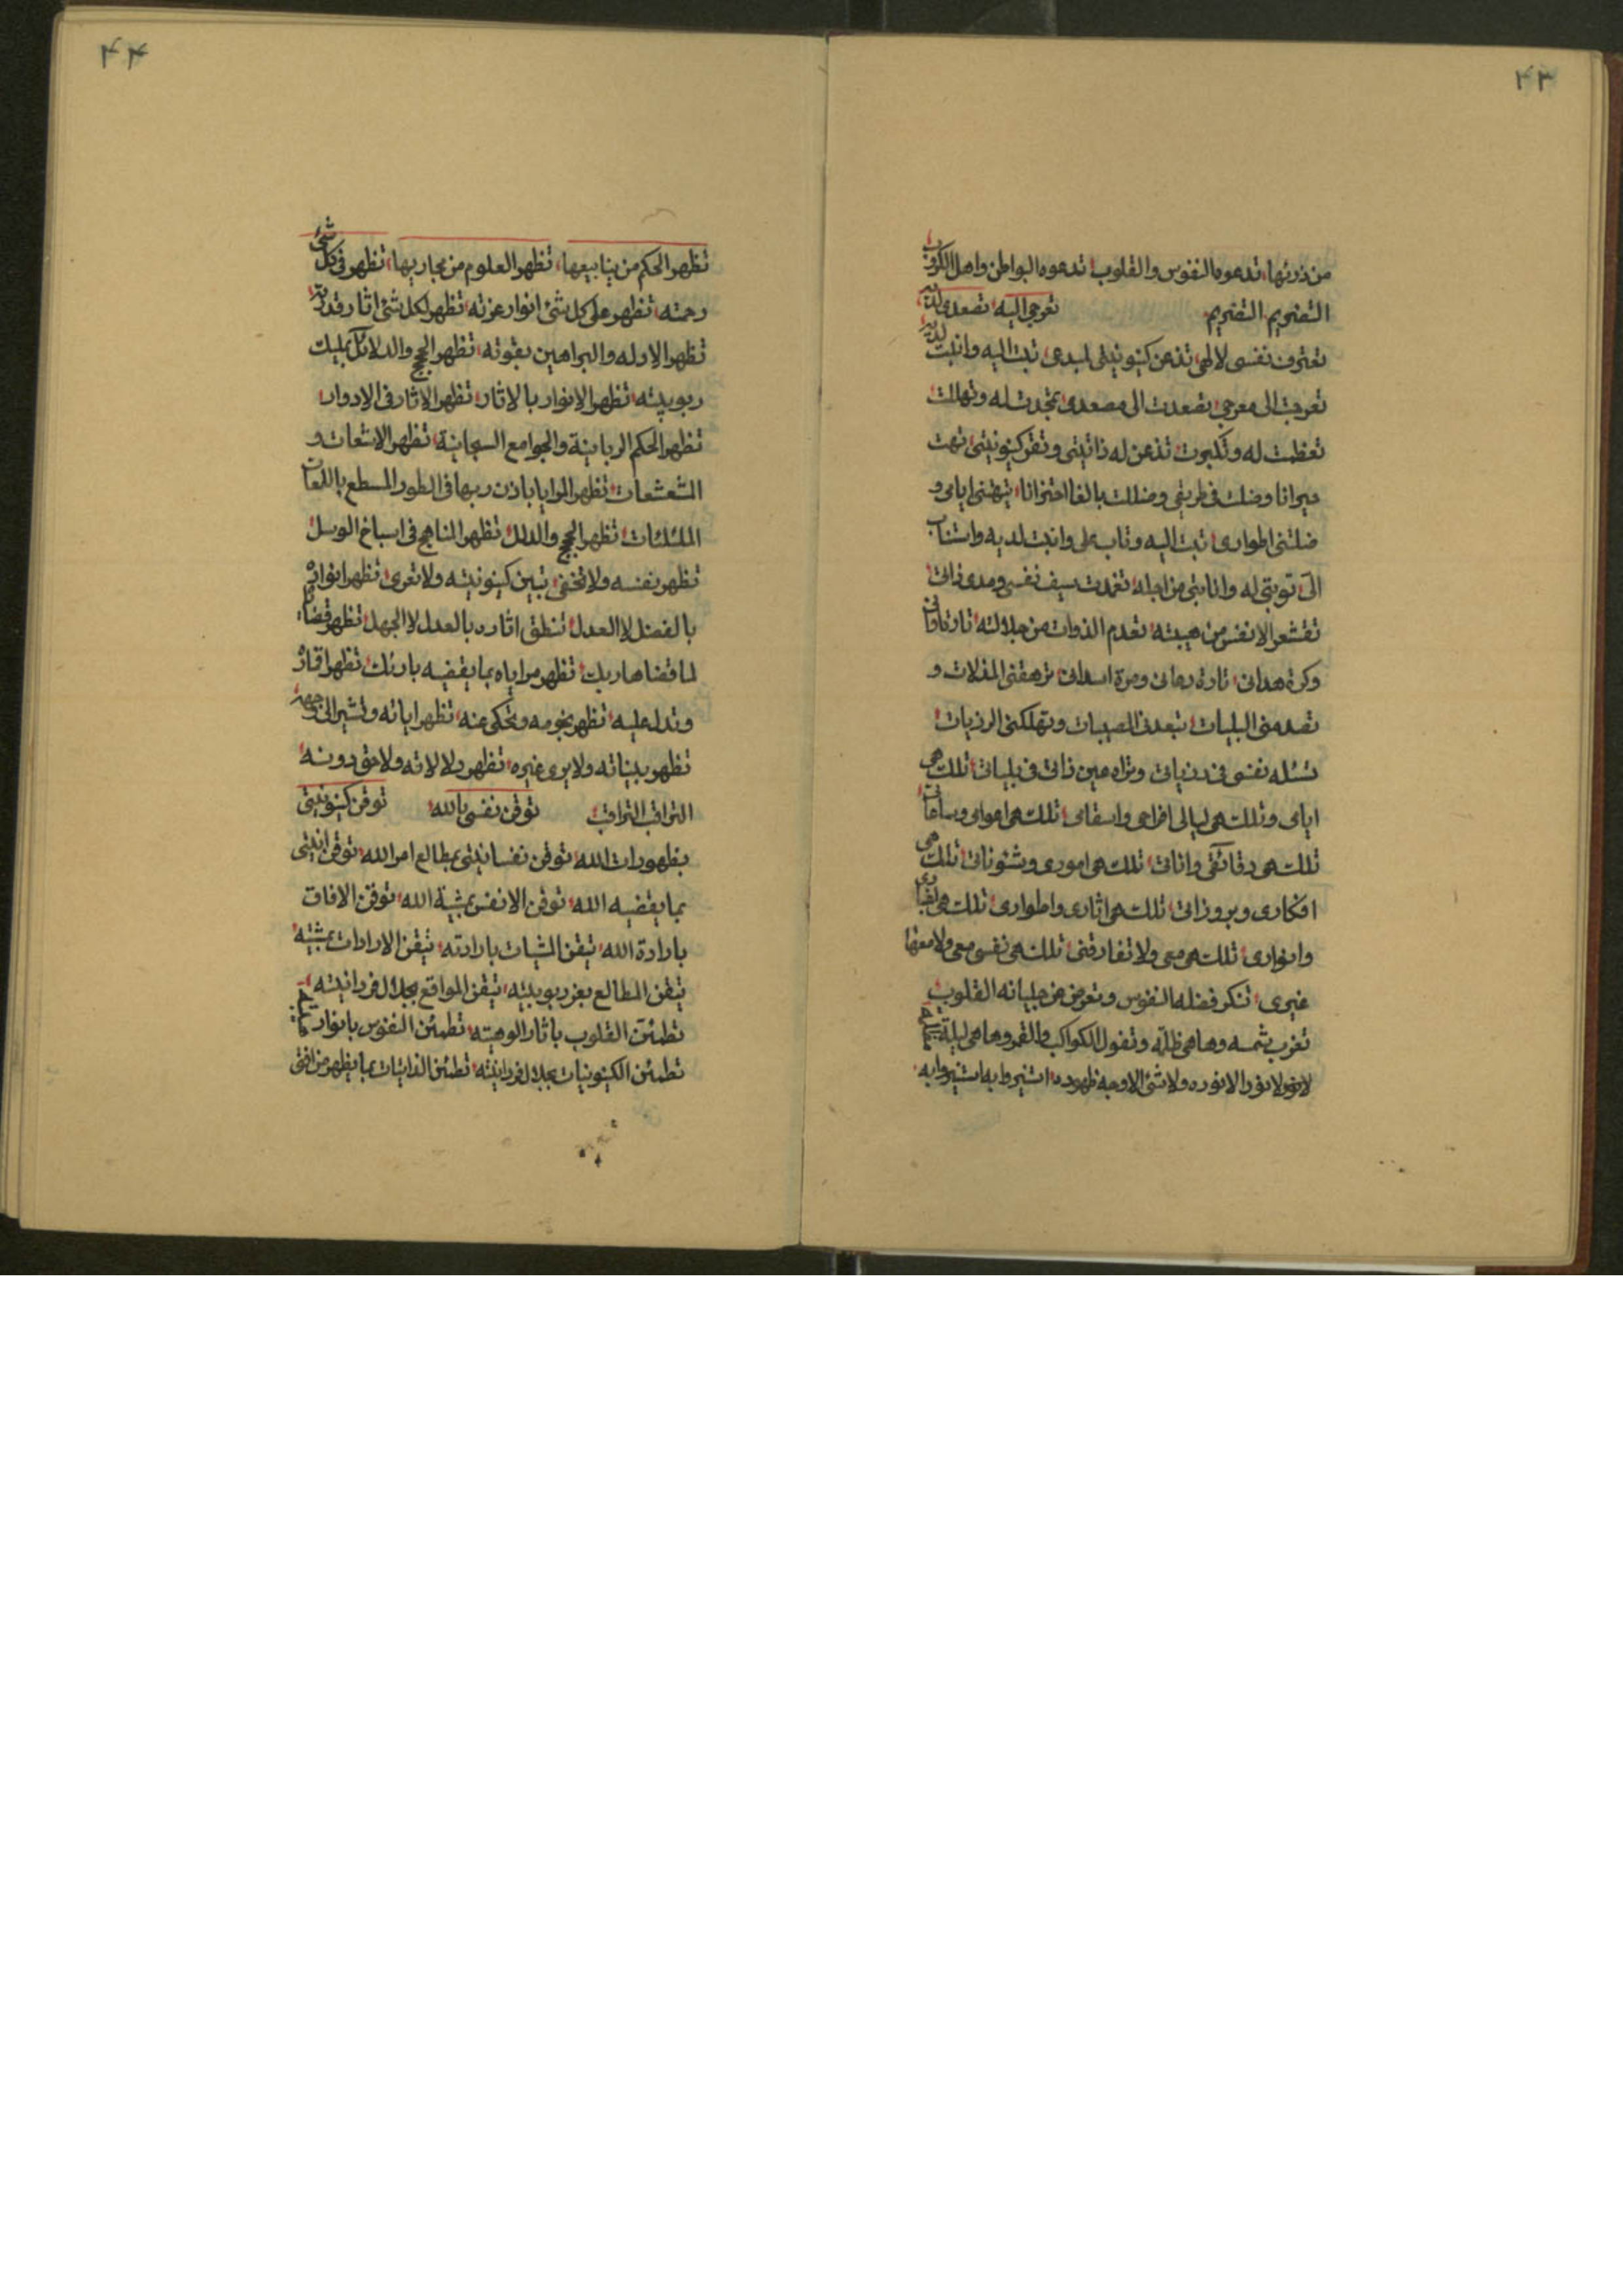 ۴۳
من ذرئها تدعوه النفوس والقلوب تدعوه البواطن واهل الكروب
التضريم التضريم تعرجى اليه تصعدى لديه
تعترف نفسى لالهى تذعن كينونيتى لمبدعى تبت اليه وانبت لديه
تعرجت الى معرجى تصعدت الى مصعدى تمجدت له وتهللت
تعظمت له وتكبرت تذعن له ذاتيتى وتقر كينونيتى تهت
حيرانا وضلت فى طريقى وضللت بالغا احتزانا تيهتنى ايامى و
ضلتنى اطوارى تبت اليه وتاب على وانبت لديه واستتاب
الى توبتى له وانابتى من اجله تغمدت سيف نفسى ومدى ذاتى
تقشعر الانفس من هيبته تعدم الذوات من جلالته تارة فان
وكرة هدانى تارة دهانى ومرة اسدانى ترهقنى المذلات و
تصدمنى البليات تبعدنى المصيبات وتهلكنى الرزيات
تسئله نفسى فى دنياتى وتراه عين ذاتى فى بلياتى تلك هى
ايامى وتلك هى ليالى افراحى واسقامى تلك هى اعوامى وساعاتى
تلك هى دقائقى واناتى تلك هى امورى وشئوناتى تلك هى
افكارى وبروزاتى تلك هى اثارى واطوارى تلك هى
وانوارى تلك هى معى ولا تفارقنى تلك هى نفسى معى ولا معها
غيرى تنكر فضله النفوس وتعرض عن جلياته القلوب
تغرب شمسه وها هى ظلمة وتفول الكواكب والقمر وها هى ليلة
لا نور الا نوره ولا شئ الا وجه ظهوره استنيروا به استنيروا به
۴۴
تظهر الحكم من ينابيعها تظهر العلوم من مجاريها تظهر فى كل شئ
رحمته تظهر على كل شئ انوار عزته تظهر لكل شئ اثار قدرته
تظهر الادله والبراهين بقوته تظهر الحجج والدلائل بمليك
ربوبيته تظهر الانوار بالاثار تظهر الاثار فى الادوار
تظهر الحكم الربانية والجوامع السبحانية تظهر الاشعات و
الشعشعات تظهر المرايا باذن ربها فى الطور المسطع باللمعات
المتلئلئات تظهر الحجج والدلل تظهر المناهج فى اسباخ الوسل
تظهر نفسه ولا تخفى تبين كينونيته ولا تعرى تظهر انواره
بالفضل لا العدل تنطق اثاره بالعدل لا الجهل تظهر قضاياه
لما قضاها ربك تظهر مراياه بما يقضيه بارئك تظهر اقماره
وتدل عليه تظهر نجومه وتحكى عنه تظهر اياته وتشير الى وجهه
تظهر بيناته ولا يرى غيره تظهر دلالاته ولا حق دونه
التراقب التراقب توقن نفسى بالله توقن كينونيتى
بظهورات الله توقن نفسانيتى بمطالع امر الله توقن انيتى
بما يقضيه الله توقن الانفس بمشية الله توقن الافاق
بارادة الله تيقن المشيات بارادته تيقن الارادات بمشيته
تيقن المطالع بعز ربوبيته تيقن المواقع بجلال فردانيته
تطمئن القلوب باثار الوهيته تطمئن النفوس بانوار
تطمئن الكينونيات بجلال فردانيته تطمئن الذاتيات بما يظهر من افق